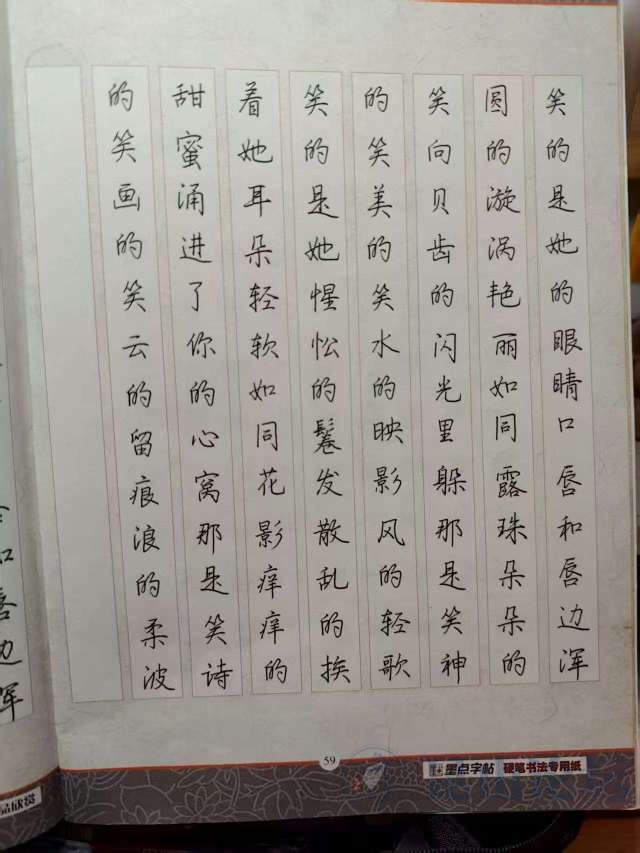 笑的是她的眼睛口唇和唇边浑
圆的漩涡艳丽如同露珠朵朵的
笑向贝齿的闪光里躲那是笑神
的笑美的笑水的映影风的轻歌
笑的是她惺忪的鬈发散乱的挨
着她耳朵轻软如同花影痒痒的
甜蜜涌进了你的心窝那是笑诗
的笑画的笑云的留痕浪的柔波
59
墨点字帖 硬笔书法专用纸
唇边浑
品欣赏